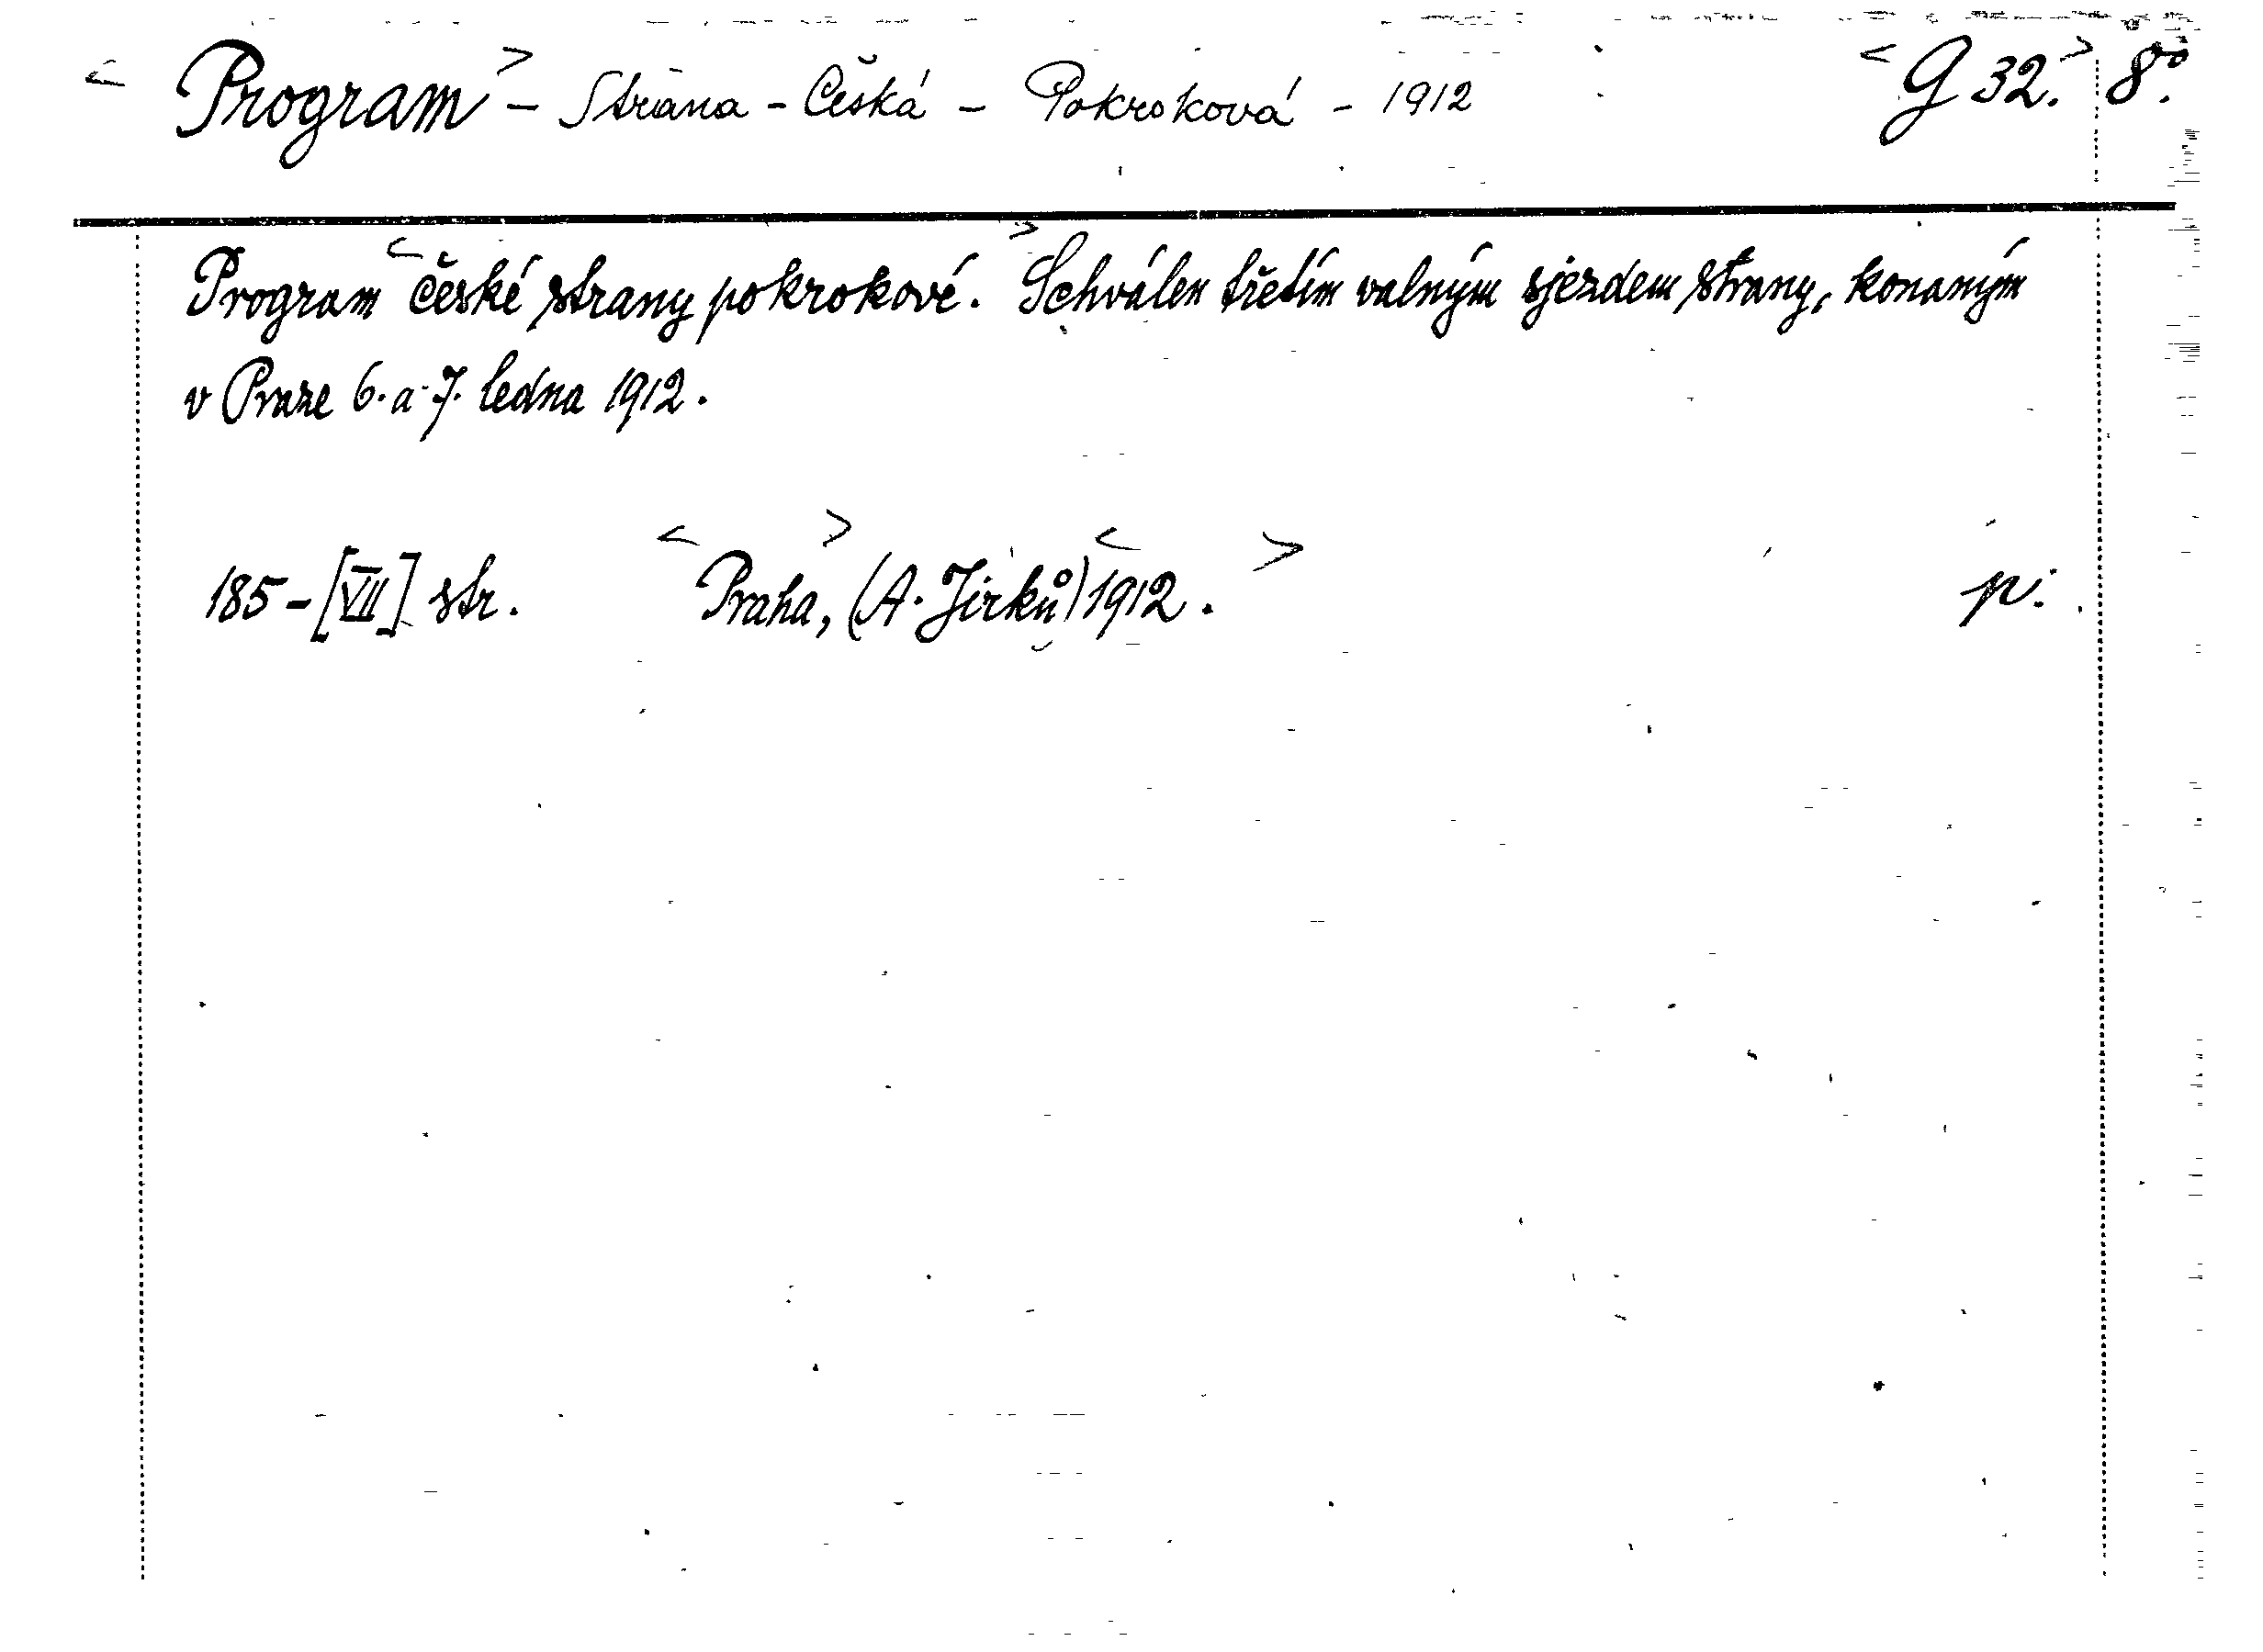 < Program > - Strana - Česká - Pokroková - 1912 < G 32. > 8°.
Program < české strany pokrokové. > Schválen třetím valným sjezdem strany, konaným
v Praze 6. a 7. ledna 1912.
185 - [VII] str. < Praha, > (A. Jirků) < 1912. > př.